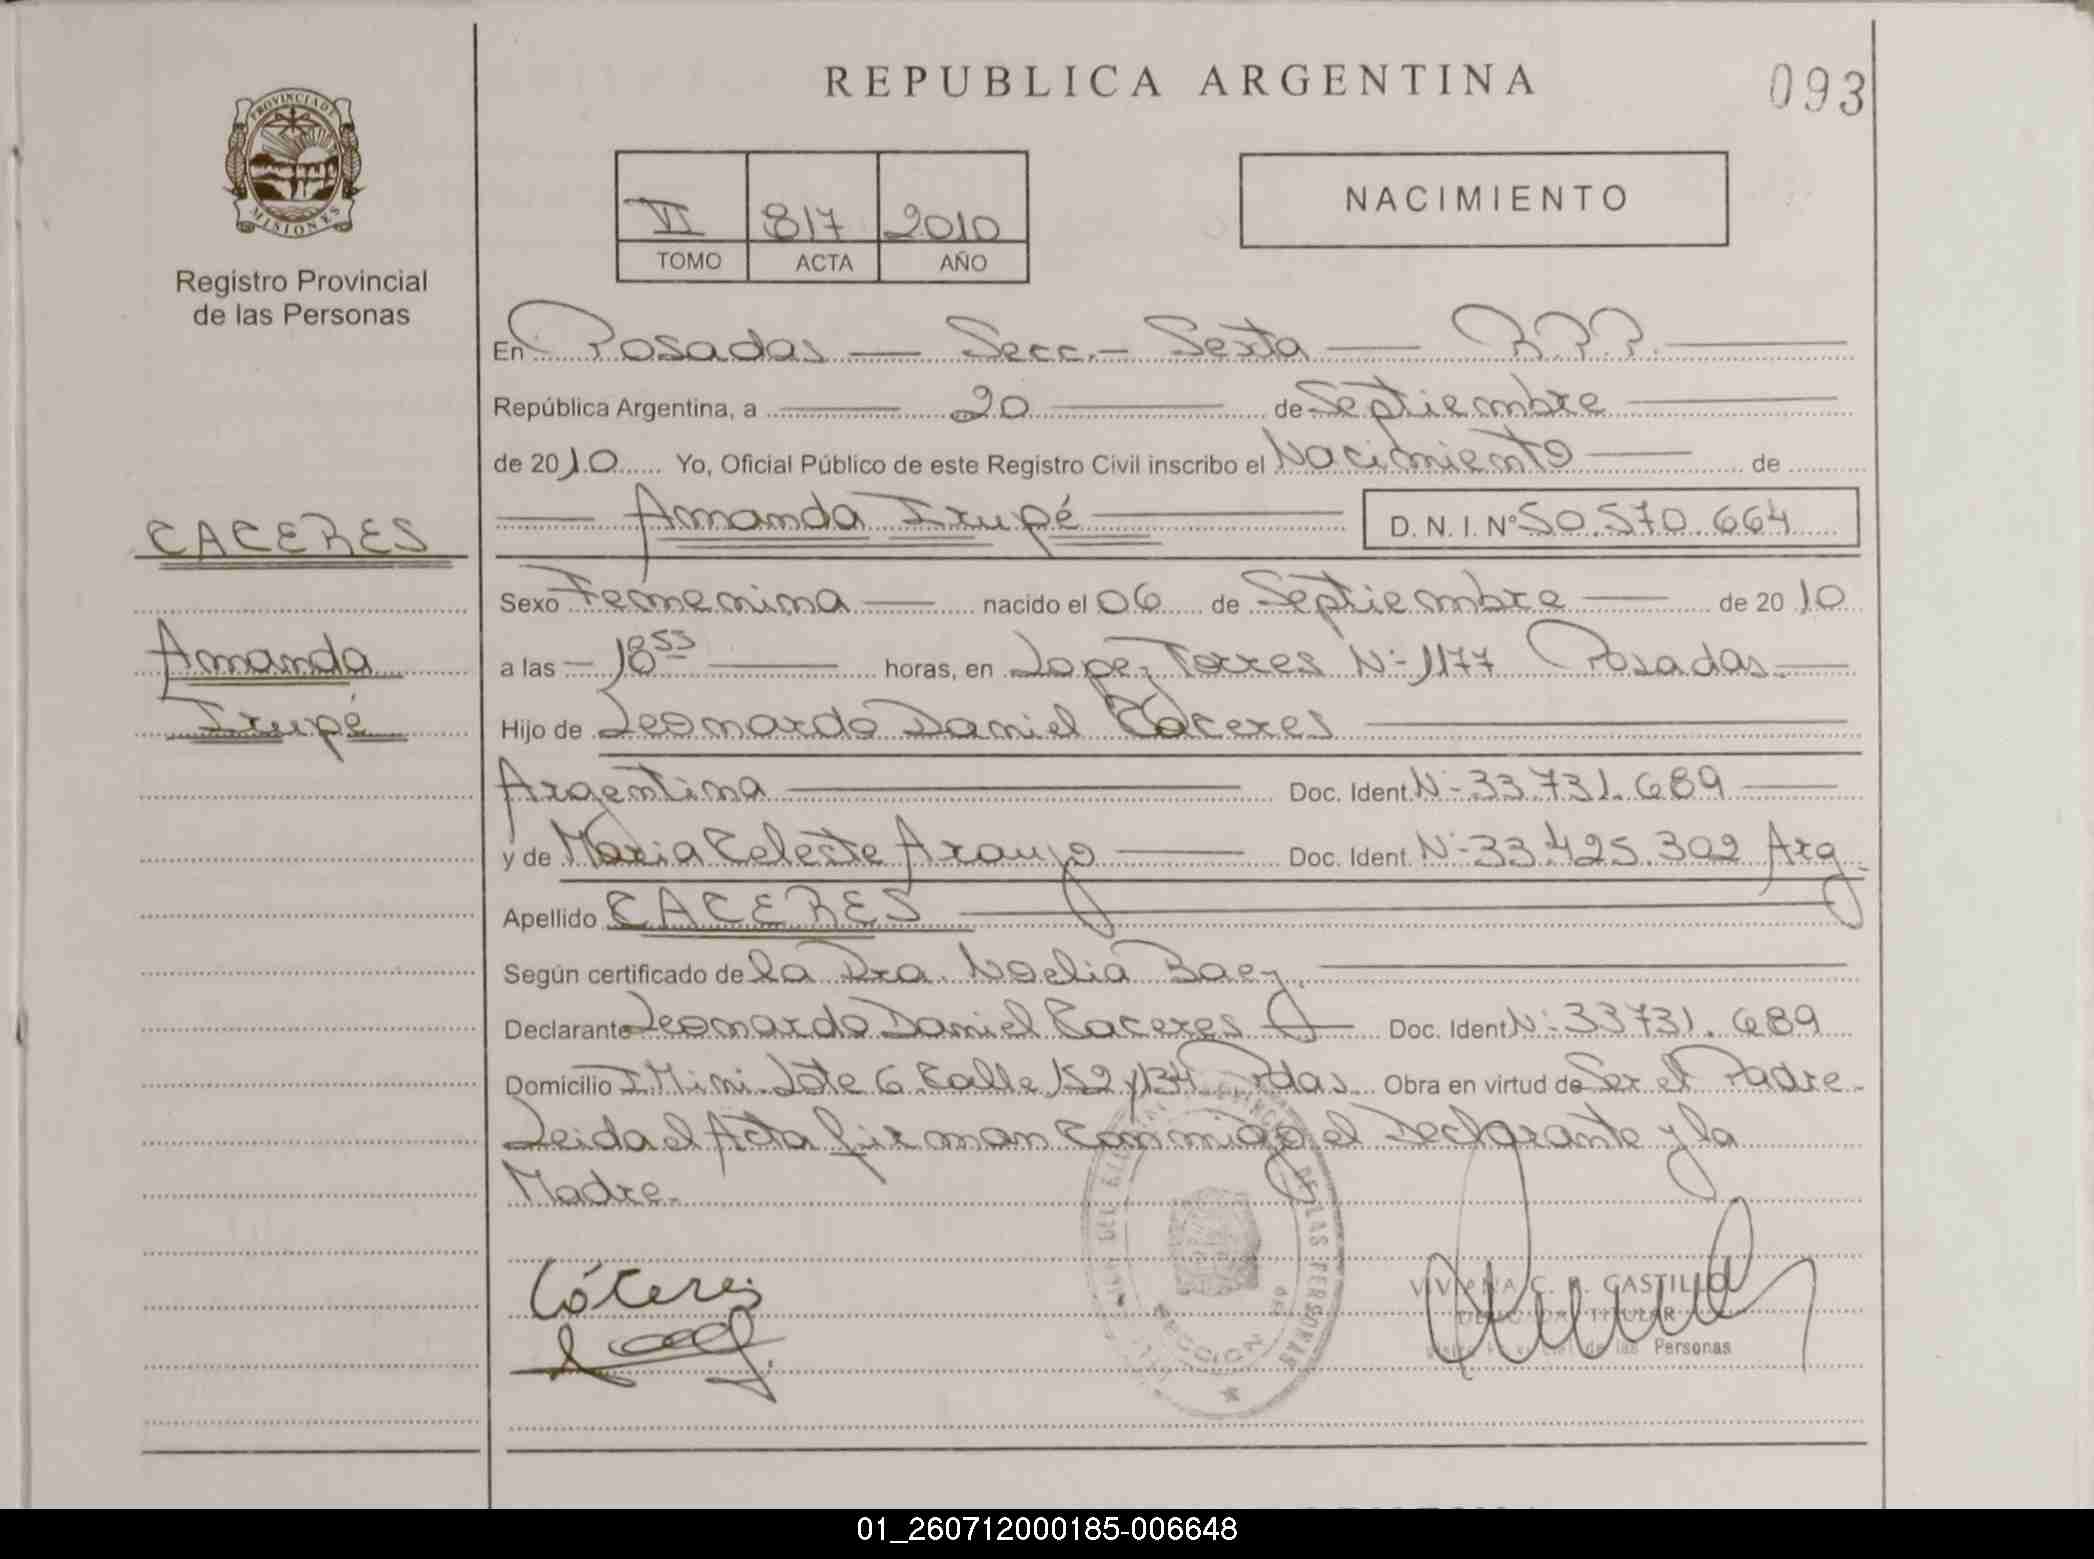 REPUBLICA ARGENTINA
093
PROVINCIA DE
MISIONES
Registro Provincial
de las Personas
VI 817 2010
TOMO ACTA AÑO
NACIMIENTO
En Posadas — Secc.- Sexta — R.P.P.
República Argentina, a 20 de Septiembre
de 2010 Yo, Oficial Público de este Registro Civil inscribo el Nacimiento de
Amanda Irupé D. N. I. Nº 50.570.664
CACERES
Amanda
Irupé
Sexo Femenina nacido el 06 de Septiembre de 2010
a las 18 53 horas, en Lopez Torres Nº 1177 Posadas
Hijo de Leonardo Daniel Caceres
Argentina Doc. Ident. Nº 33.731.689
y de Maria Celeste Araujo Doc. Ident. Nº 33.425.302 Arg.
Apellido CACERES
Según certificado de la Dra. Noelia Baez
Declarante Leonardo Daniel Caceres Doc. Ident Nº 33.731.689
Domicilio Lote 6 Calle 152 y 134 Pdas. Obra en virtud de Ser el Padre.
Leida el Acta firman conmigo el Declarante y la
Madre.
Cáceres
VIVIANA C. CASTILLO
DELEGADA TITULAR
de las Personas
DE LAS PERSONAS
SECCION
01_260712000185-006648